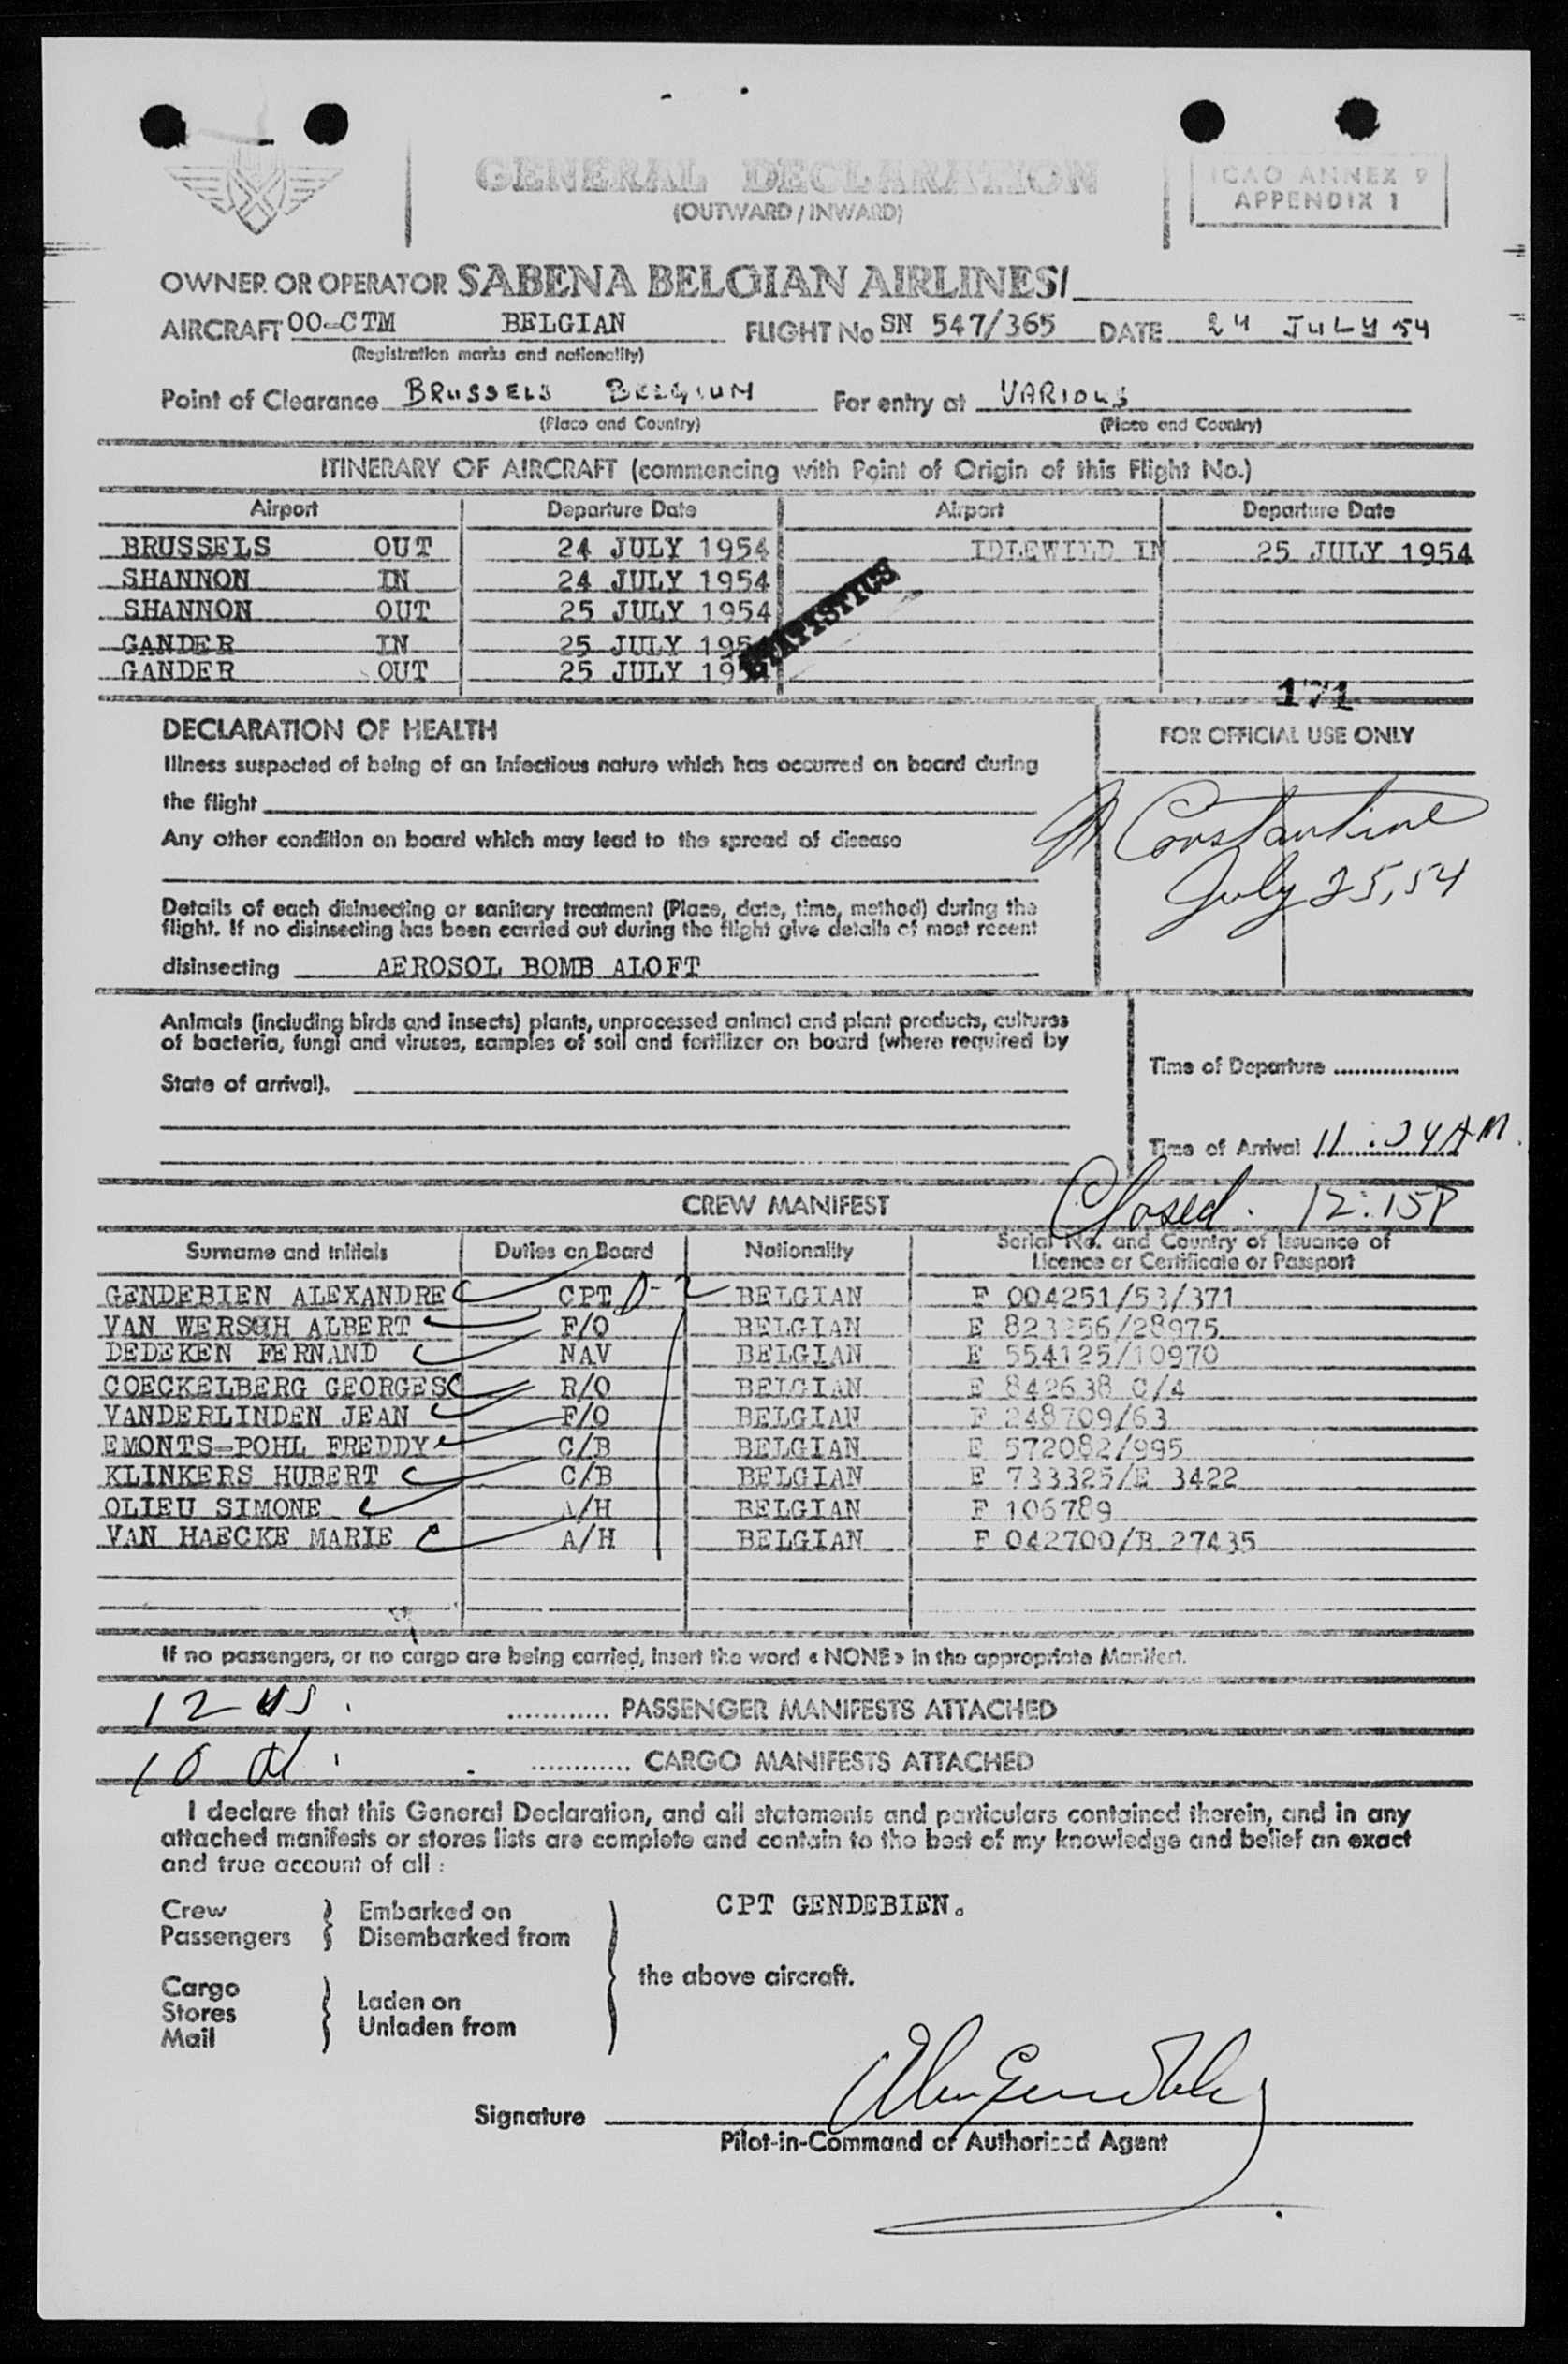 GENERAL DECLARATION
(OUTWARD / INWARD)
ICAO ANNEX 9
APPENDIX 1
OWNER OR OPERATOR SABENA BELGIAN AIRLINES/
AIRCRAFT OO-CTM BELGIAN FLIGHT No SN 547/365 DATE 24 JULY 54
(Registration marks and nationality)
Point of Clearance BRUSSELS BELGIUM For entry at VARIOUS
(Place and Country) (Place and Country)
ITINERARY OF AIRCRAFT (commencing with Point of Origin of this Flight No.)
Airport Departure Date Airport Departure Date
BRUSSELS OUT 24 JULY 1954 IDLEWILD IN 25 JULY 1954
SHANNON IN 24 JULY 1954
SHANNON OUT 25 JULY 1954
GANDER IN 25 JULY 1954
GANDER OUT 25 JULY 1954
STATISTICS
171
DECLARATION OF HEALTH
FOR OFFICIAL USE ONLY
Illness suspected of being of an infectious nature which has occurred on board during
the flight
Any other condition on board which may lead to the spread of disease
Constantine
July 25, 54
Details of each disinsecting or sanitary treatment (Place, date, time, method) during the
flight. If no disinsecting has been carried out during the flight give details of most recent
disinsecting AEROSOL BOMB ALOFT
Animals (including birds and insects) plants, unprocessed animal and plant products, cultures
of bacteria, fungi and viruses, samples of soil and fertilizer on board (where required by
State of arrival).
Time of Departure
Time of Arrival 11:34 AM.
Closed. 12:15P
CREW MANIFEST
Surname and Initials Duties on Board Nationality Serial No. and Country of Issuance of
Licence or Certificate or Passport
GENDEBIEN ALEXANDRE CPT D-2 BELGIAN F 004251/53/371
VAN WERSCH ALBERT F/O BELGIAN E 823256/28975
DEDEKEN FERNAND NAV BELGIAN E 554125/10970
COECKELBERG GEORGES R/O BELGIAN E 842638 C/4
VANDERLINDEN JEAN F/O BELGIAN F 248709/63
EMONTS-POHL FREDDY C/B BELGIAN E 572082/995
KLINKERS HUBERT C/B BELGIAN E 733325/E 3422
OLIEU SIMONE A/H BELGIAN F 106789
VAN HAECKE MARIE A/H BELGIAN F 042700/B 27435
If no passengers, or no cargo are being carried, insert the word « NONE » in the appropriate Manifest.
12 US. ............ PASSENGER MANIFESTS ATTACHED
10 al. ............ CARGO MANIFESTS ATTACHED
I declare that this General Declaration, and all statements and particulars contained therein, and in any
attached manifests or stores lists are complete and contain to the best of my knowledge and belief an exact
and true account of all :
CPT GENDEBIEN.
Crew Embarked on
Passengers Disembarked from
the above aircraft.
Cargo
Stores Laden on
Mail Unladen from
Signature
Pilot-in-Command or Authorised Agent